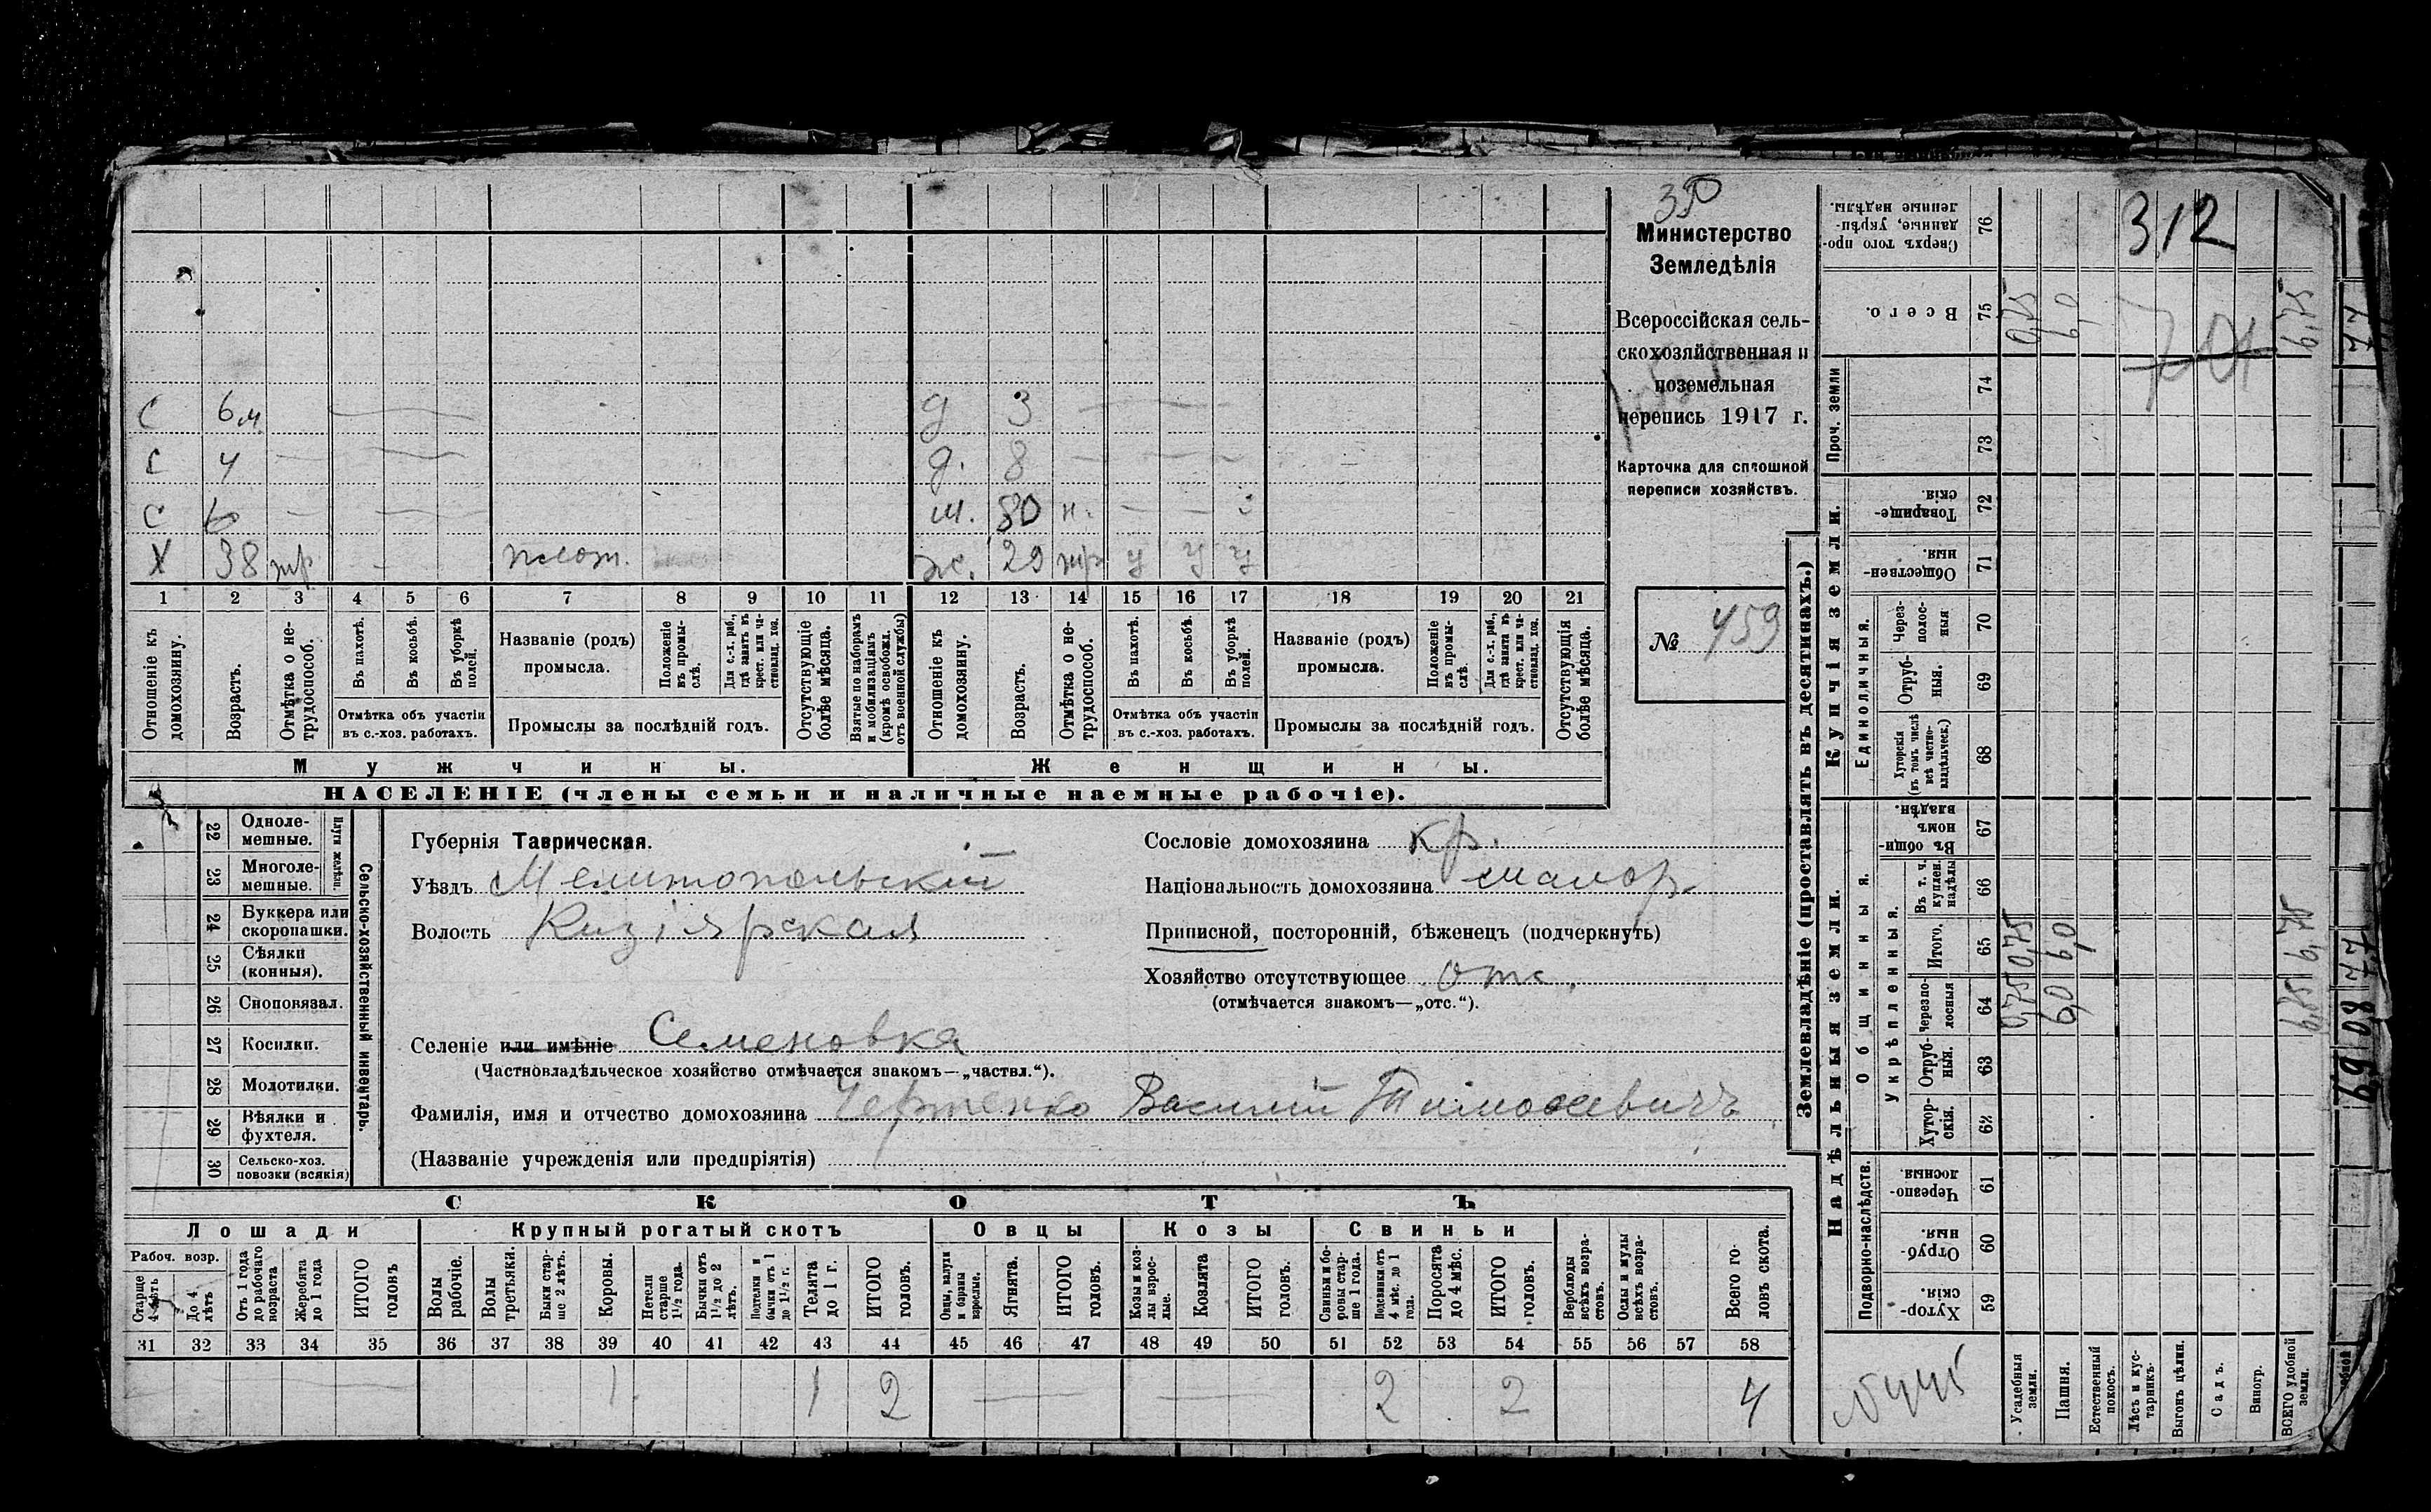 350
Министерство
Земледѣлія
Всероссійская сель-
скохозяйственная и
поземельная
перепись 1917 г.
Карточка для сплошной
переписи хозяйствъ.
№ 459
С 6 м. Д 3
С 4 Д. 8
С 6 м. 80 н.
Х 38 тр плот. ж. 29 тр у у у
1 2 3 4 5 6 7 8 9 10 11 12 13 14 15 16 17 18 19 20 21
Отношеніе къ домохозяину.
Возрастъ.
Отмѣтка о не-
трудоспособ.
Въ пахотѣ.
Въ косьбѣ.
Въ уборкѣ полей.
Отмѣтка объ участіи
въ с.-хоз. работахъ.
Названіе (родъ)
промысла.
Положеніе въ промы-
слѣ.
Для с.-х. раб., гдѣ занятъ въ крест. или ча-
стновлад. хоз.
Промыслы за послѣдній годъ.
Отсутствующіе болѣе мѣсяца.
Взятые по наборамъ и мобилизаціямъ (кромѣ освобожд. отъ военной службы)
Отношеніе къ домохозяину.
Возрастъ.
Отмѣтка о не-
трудоспособ.
Въ пахотѣ.
Въ косьбѣ.
Въ уборкѣ полей.
Отмѣтка объ участіи
въ с.-хоз. работахъ.
Названіе (родъ)
промысла.
Положеніе въ промы-
слѣ.
Для с.-х. раб., гдѣ занята въ крест. или ча-
стновлад. хоз.
Промыслы за послѣдній годъ.
Отсутствующія болѣе мѣсяца.
Мужчины. Женщины.
НАСЕЛЕНІЕ (члены семьи и наличные наемные рабочіе).
22 Одноле-
мешные.
23 Многоле-
мешные.
Плуги желѣзн.
24 Буккера или
скоропашки.
25 Сѣялки
(конныя).
26 Сноповязал.
27 Косилки.
28 Молотилки.
29 Вѣялки и
фухтеля.
30 Сельско-хоз.
повозки (всякія)
Сельско-хозяйственный инвентарь.
Губернія Таврическая.
Уѣздъ Мелитопольскій
Волость Кизіярская
Селеніе или имѣніе Семеновка
(Частновладѣльческое хозяйство отмѣчается знакомъ—„частвл.“).
Фамилія, имя и отчество домохозяина Чертенко Василій Тимофеевичъ
(Названіе учрежденія или предпріятія)
Сословіе домохозяина кр.
Національность домохозяина малор.
Приписной, посторонній, бѣженецъ (подчеркнуть)
Хозяйство отсутствующее отс.
(отмѣчается знакомъ—„отс.“).
СКОТЪ
Лошади Крупный рогатый скотъ Овцы Козы Свиньи
Рабоч. возр.
Старше 4 лѣтъ
До 4 лѣтъ
Отъ 1 года до рабочаго возраста
Жеребята до 1 года
ИТОГО головъ
Волы рабочіе.
Волы третьяки.
Быки стар-
ше 2 лѣтъ.
Коровы.
Нетели старше 1½ года.
Бычки отъ 1½ до 2 лѣтъ.
Подтелки и бычки отъ 1 до 1½ г.
Телята до 1 г.
ИТОГО головъ.
Овцы, валухи и бараны взрослые.
Ягнята.
ИТОГО головъ.
Козы и коз-
лы взрос-
лые.
Козлята
ИТОГО головъ.
Свиньи и бо-
ровы стар-
ше 1 года.
Подсвинки отъ 4 мѣс. до 1 года.
Поросята до 4 мѣс.
ИТОГО головъ.
Верблюды всѣхъ возра-
стовъ.
Ослы и мулы всѣхъ возра-
стовъ.
Всего го-
ловъ скота.
31 32 33 34 35 36 37 38 39 40 41 42 43 44 45 46 47 48 49 50 51 52 53 54 55 56 57 58
1 1 2 2 2 4
Землевладѣніе (проставлять въ десятинахъ.)
Купчія земли.
Надѣльныя земли.
Сверхъ того про-
данные, укрѣп-
ленные надѣлы.
76
312
Всего.
75
0,75
6,0
6,75
701
Проч. земли
74
73
Товарище-
скія.
72
Обществен-
ныя.
71
Единоличныя.
Через-
полос-
ныя
70
Отруб-
ныя.
69
Хуторскія
(въ томъ числѣ всѣ частно-
владѣльческ.)
68
Общинныя.
Въ общи-
номъ
владѣн.
67
Укрѣпленныя.
Въ т. ч. куплен. надѣлы
66
Итого.
65
0,75
6,0
6,75
Черезпо-
лосныя
64
0,75
6,0
6,75
Отруб-
ныя.
63
Хутор-
скія.
62
Подворно-наслѣдств.
Черезпо-
лосныя
61
Отруб-
ныя.
60
Хутор-
скія.
59
№445
Усадебныя земли.
Пашня.
Естественный покосъ.
Лѣсъ и кус-
тарникъ.
Выгонъ цѣлин.
Садъ.
Виногр.
ВСЕГО удобной земли.
77